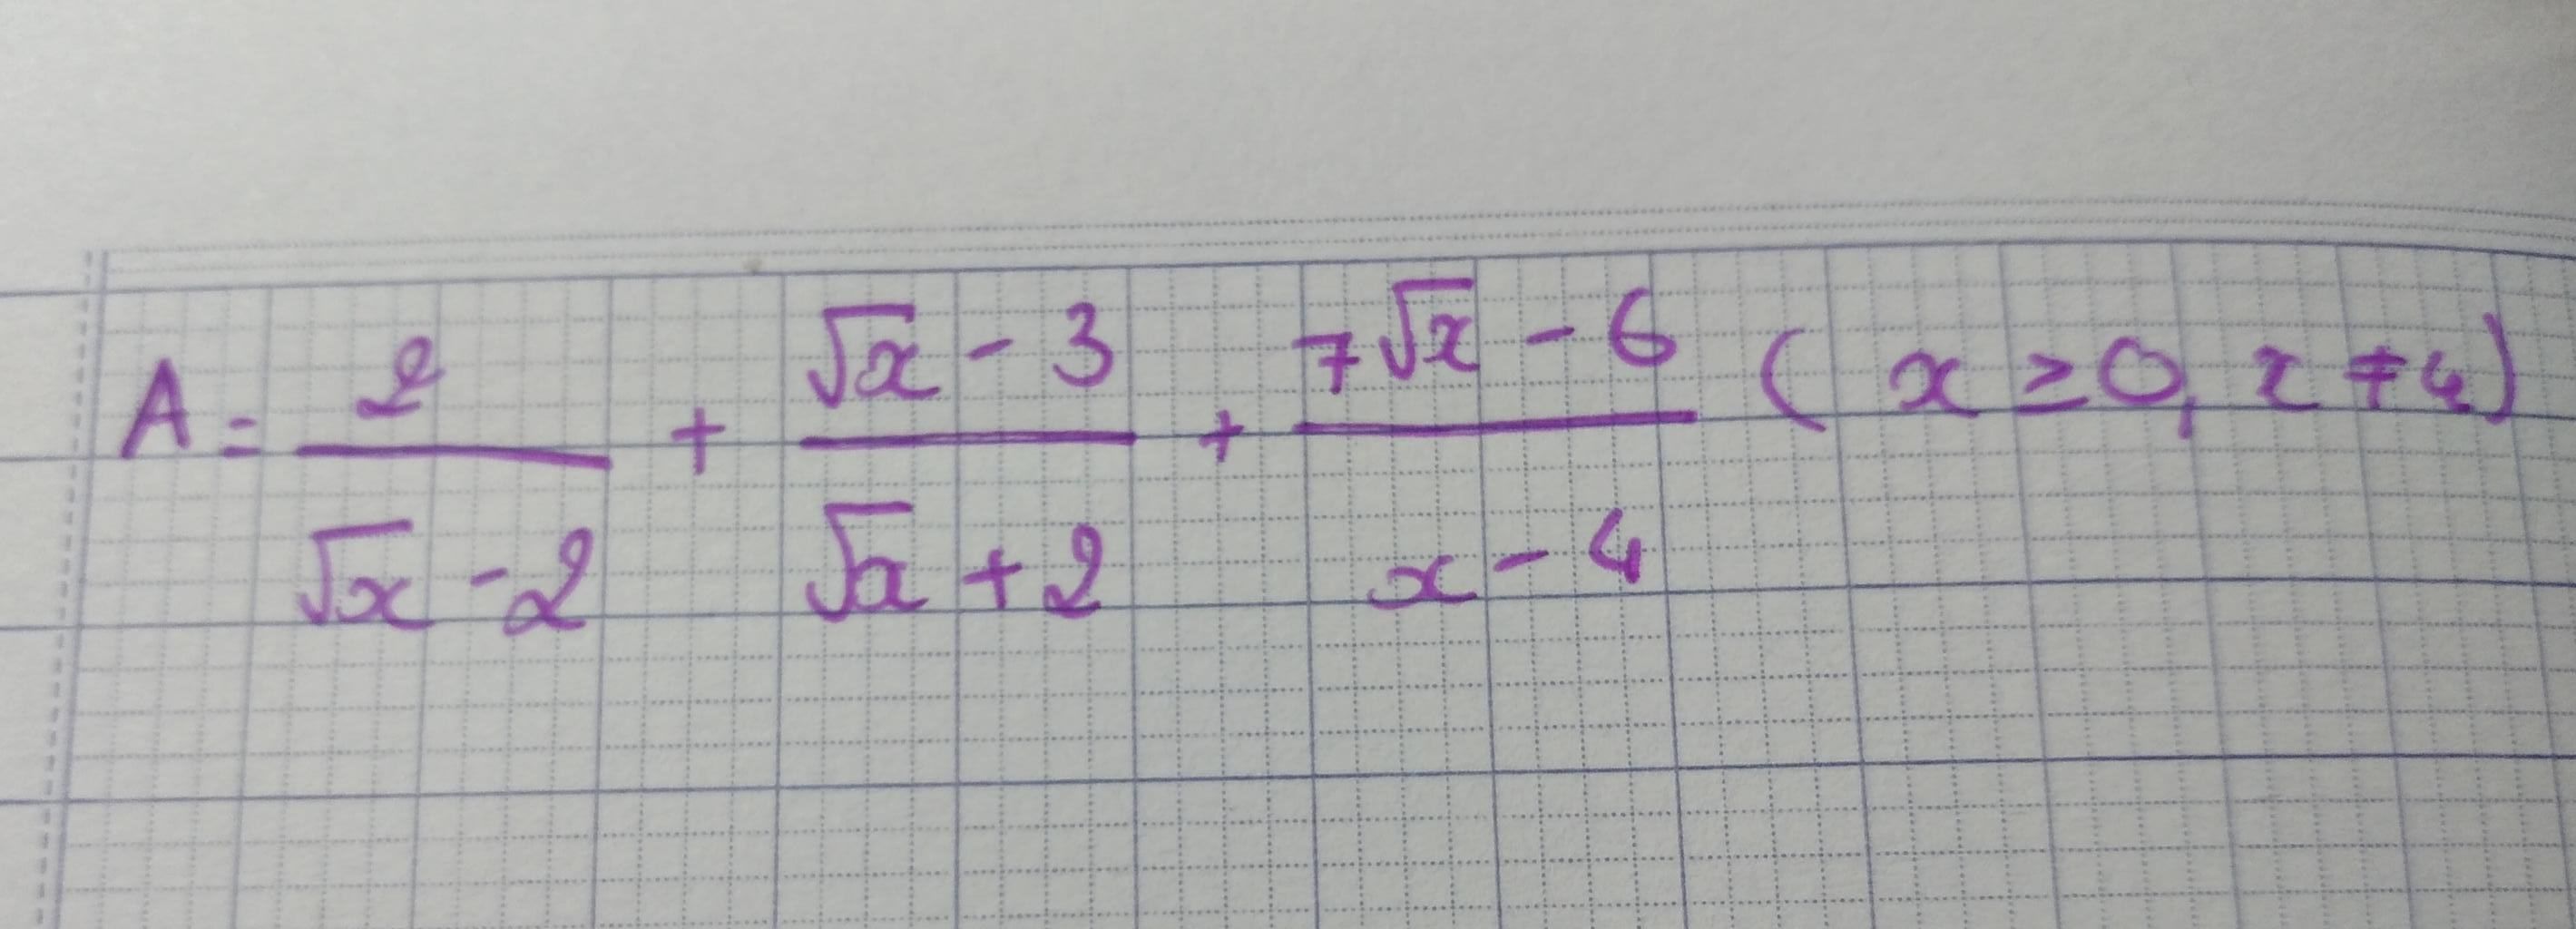 A = \frac{2}{\sqrt{x} - 2} + \frac{\sqrt{x} - 3}{\sqrt{x} + 2} + \frac{7\sqrt{x} - 6}{x - 4} ( x ≥ 0, x ≠ 4)